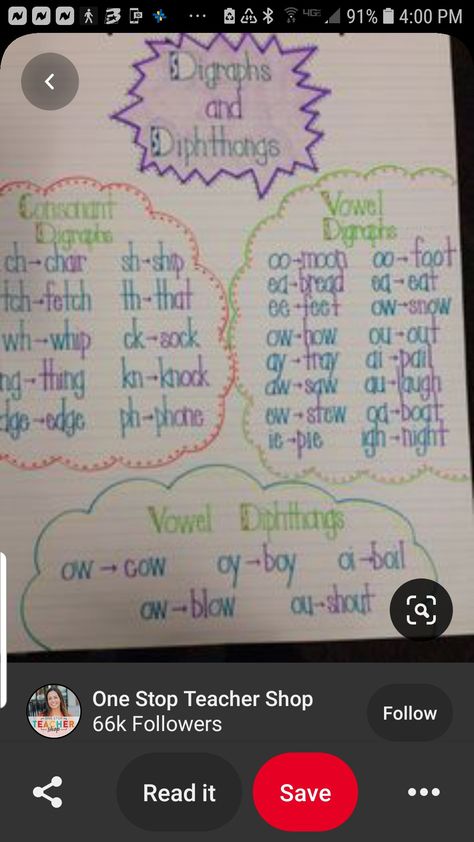 91% 4:00 PM
Digraphs
and
Diphthongs
Consonant
Digraphs
ch→chair sh→ship
tch→fetch th→that
wh→whip ck→sock
ng→thing kn→knock
dge→edge ph→phone
Vowel
Digraphs
oo→moon oo→foot
ea→bread ea→eat
ee→feet ow→snow
ow→how ou→out
ay→tray ai→pail
aw→saw au→laugh
ew→stew oa→boat
ie→pie igh→night
Vowel Diphthongs
ow→cow oy→boy oi→boil
ow→blow ou→shout
One Stop Teacher Shop
66k Followers
Follow
Read it
Save